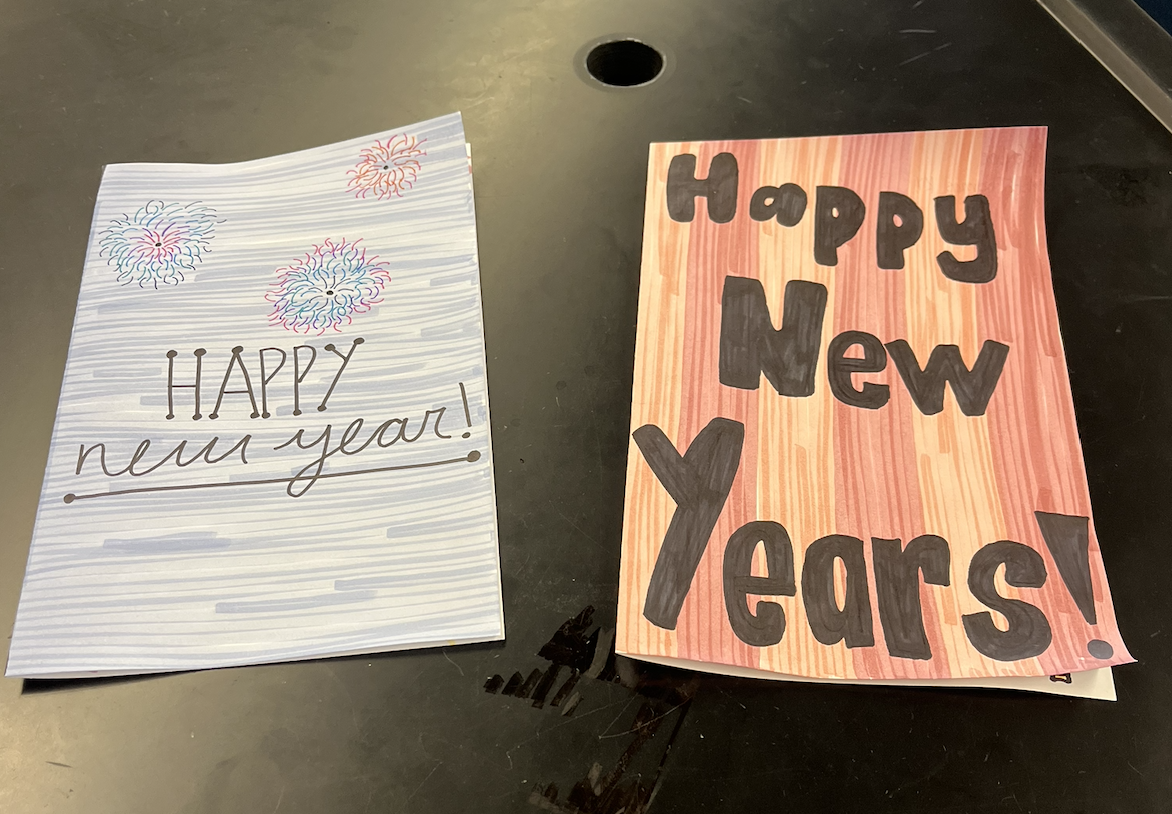 HAPPY
new year!
Happy
New
Years!